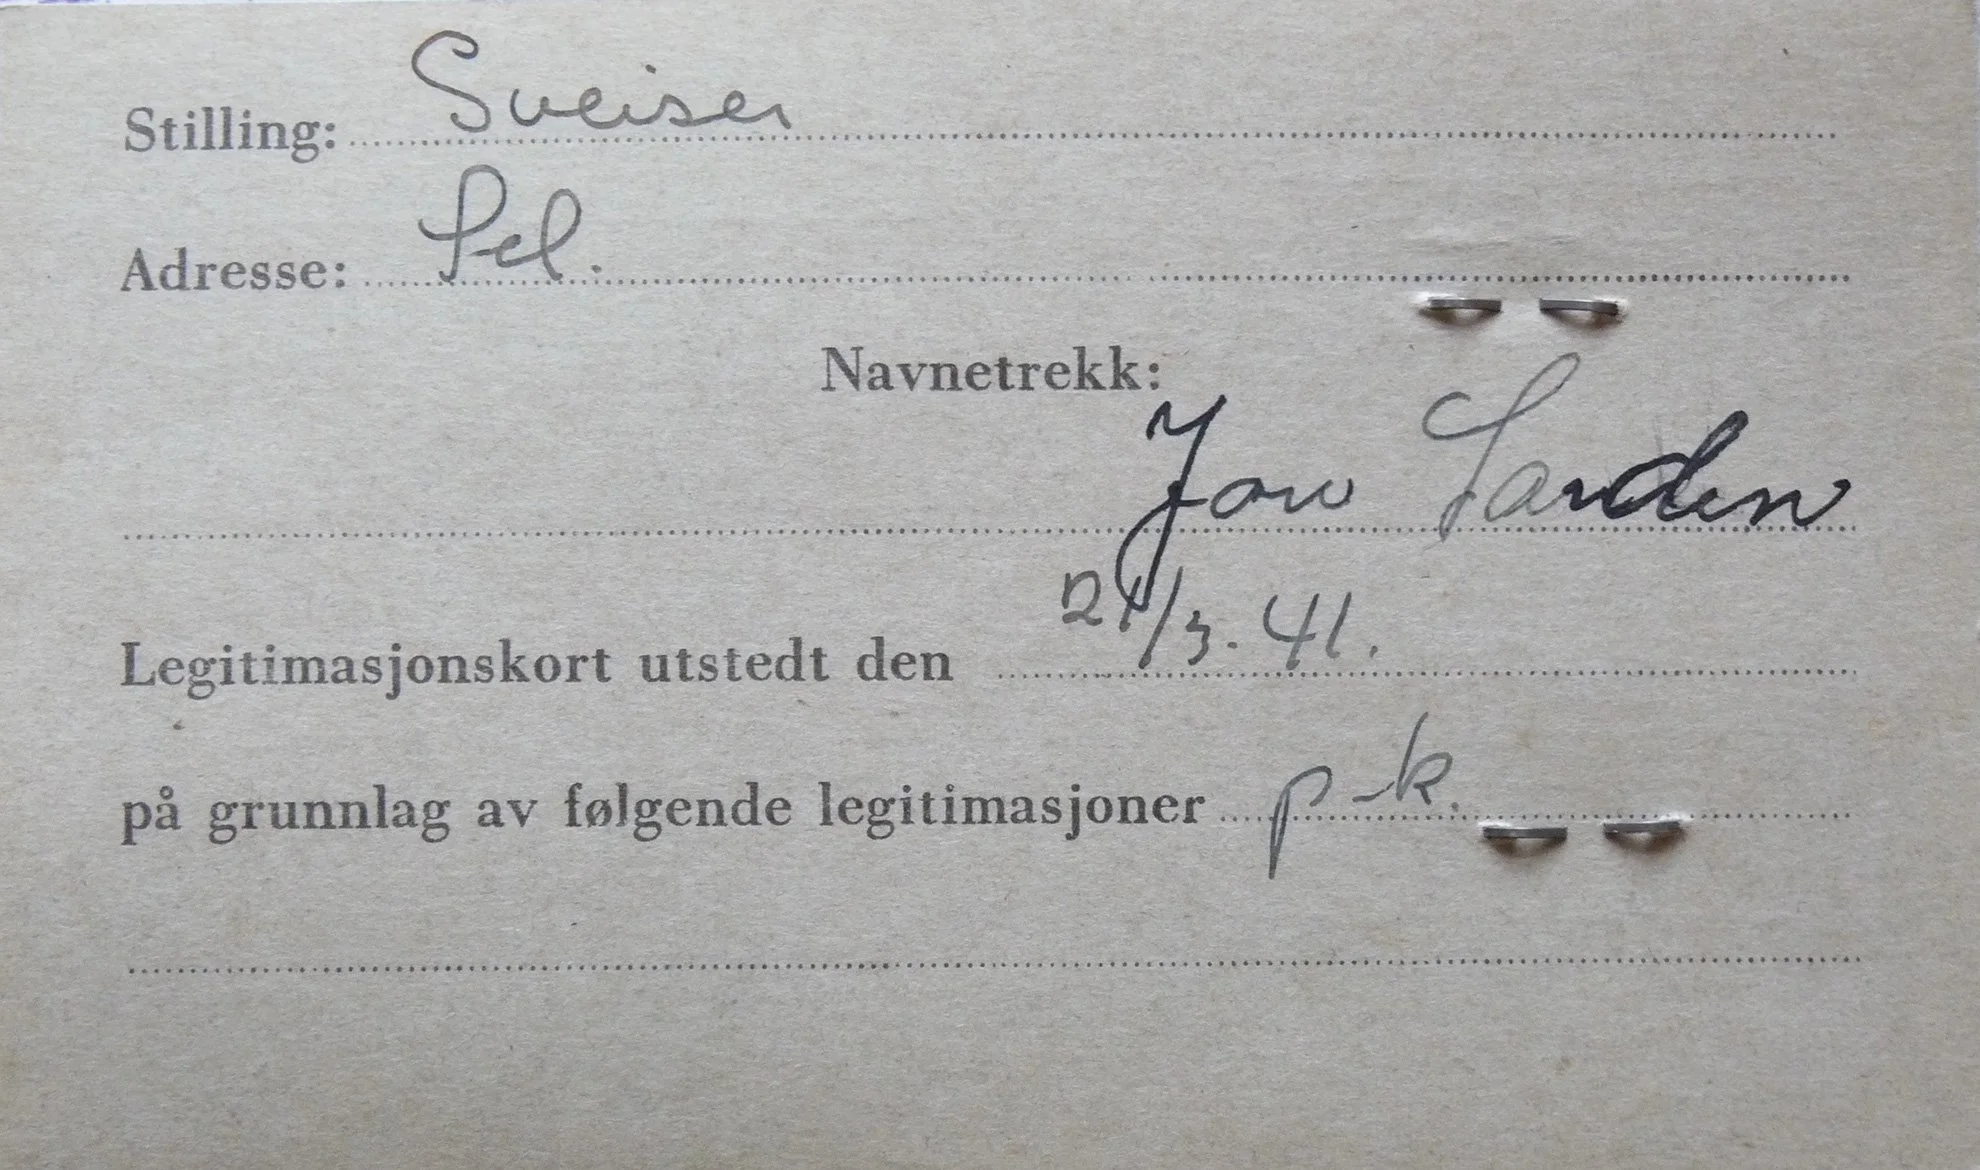 Stilling: Sveiser
Adresse: Sel.
Navnetrekk:
Jon Sanden
Legitimasjonskort utstedt den 21/3.41.
på grunnlag av følgende legitimasjoner p-k.